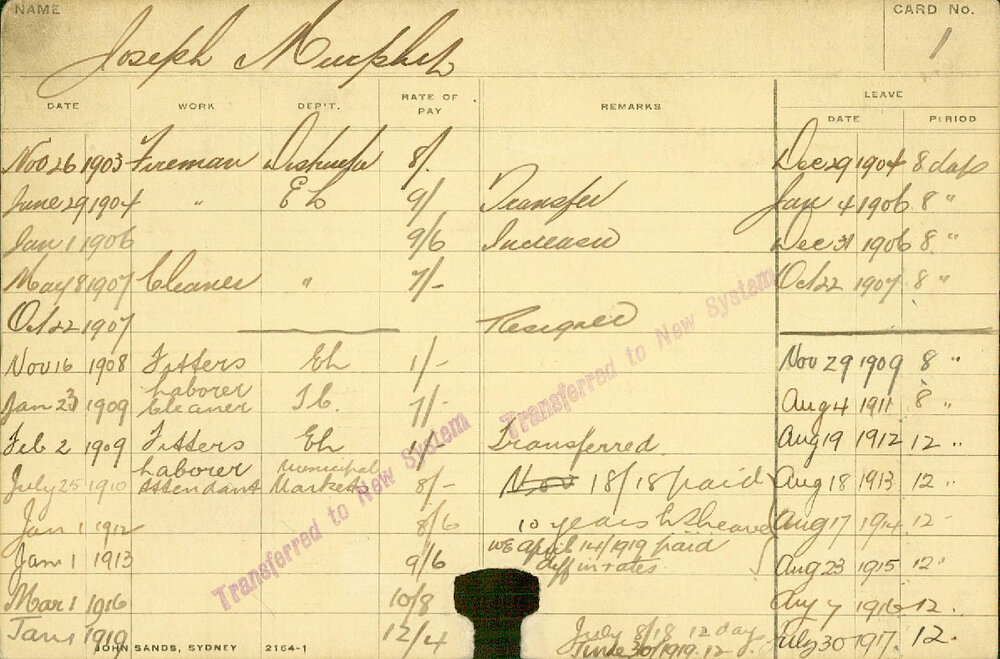 NAME
CARD No.
Joseph Murphy
1
DATE WORK DEP'T. RATE OF PAY REMARKS LEAVE
DATE PERIOD
Nov 26 1903 Fireman 8/- Dec 29 1904 8 days
June 29 1904 " E L 9/ Transfer Jan 4 1906 8 "
Jan 1 1906 9/6 Increase Dec 31 1906 8 "
May 8 1907 Cleaner " 7/- Oct 22 1907 8 "
Oct 22 1907 Resigned
Nov 16 1908 Fitters EL /- Nov 29 1909 8 "
Laborer
Jan 23 1909 Cleaner 7/- Aug 4 1911 8 "
Feb 2 1909 Fitters EL Transferred Aug 19 1912 12 "
Laborer Municipal
July 25 1910 Attendant Markets 8/- Nov 18/18 paid Aug 18 1913 12 "
Jan 1 1912 8/6 10 years Leave Aug 17 1914 12 "
Jan 1 1913 9/6 WE April 14/1919 paid Aug 23 1915 12 "
diff in rates
Mar 1 1916 10/8 Aug 7 1916 12 "
Jan 1 1919 12/4 July 8/18 12 days July 30 1917 12 "
June 30/1919 12
Transferred to New System
Transferred to New System
JOHN SANDS, SYDNEY 2164-1